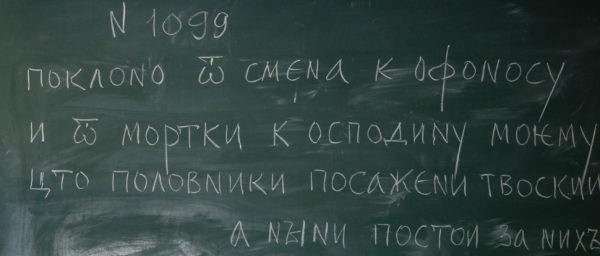 N 1099
поклоно ѿ смєна к офоносу
и ѿ мортки к осподину моєму
цто половники посажєни твоскии
а нъıни постои за нихъ